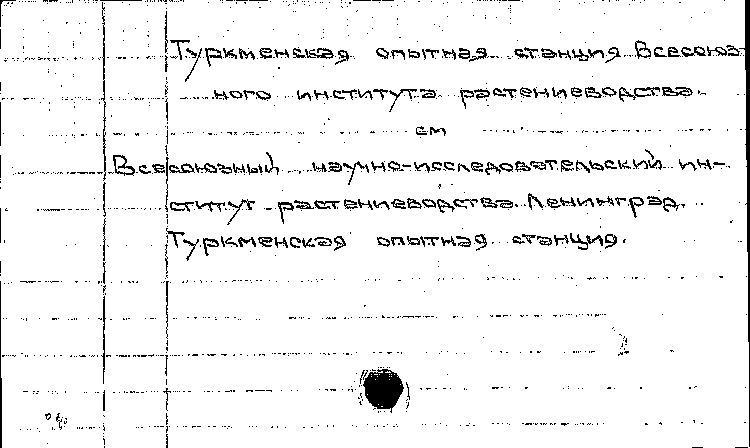 Туркменская опытная станция Всесоюз-
ного института растениеводства.
см
Всесоюзный научно-исследовательский ин-
ститут растениеводства. Ленинград.
Туркменская опытная станция.